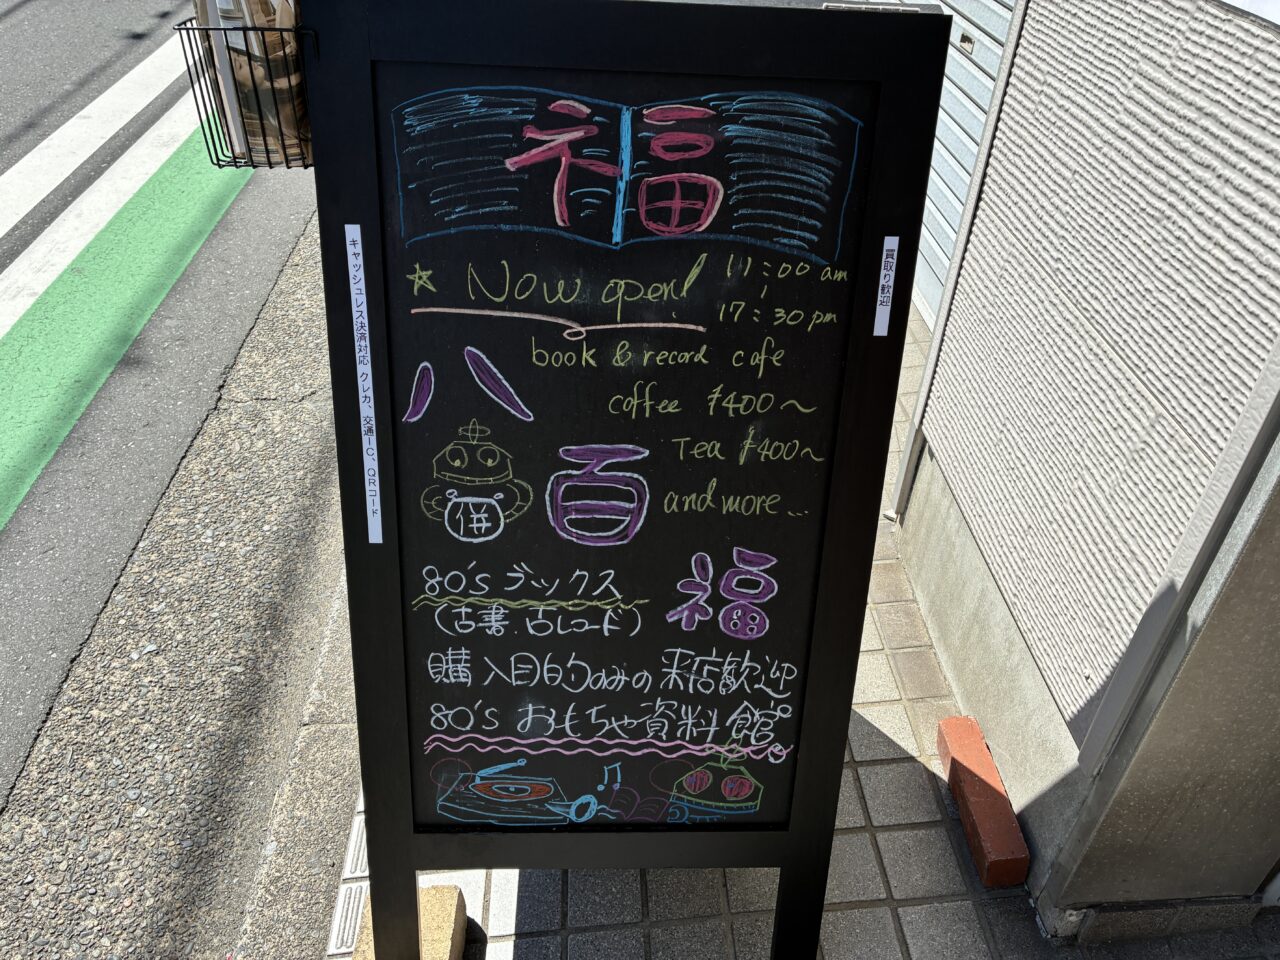 福
☆ Now open! 11:00 am
〜
17:30 pm
book & record cafe
coffee ¥400〜
Tea ¥400〜
and more...
八百福
併
80's ブックス
(古書、古レコード)
購入目的のみの来店歓迎
80's おもちゃ資料館。
キャッシュレス決済対応 クレカ、交通IC、QRコード
買取り歓迎